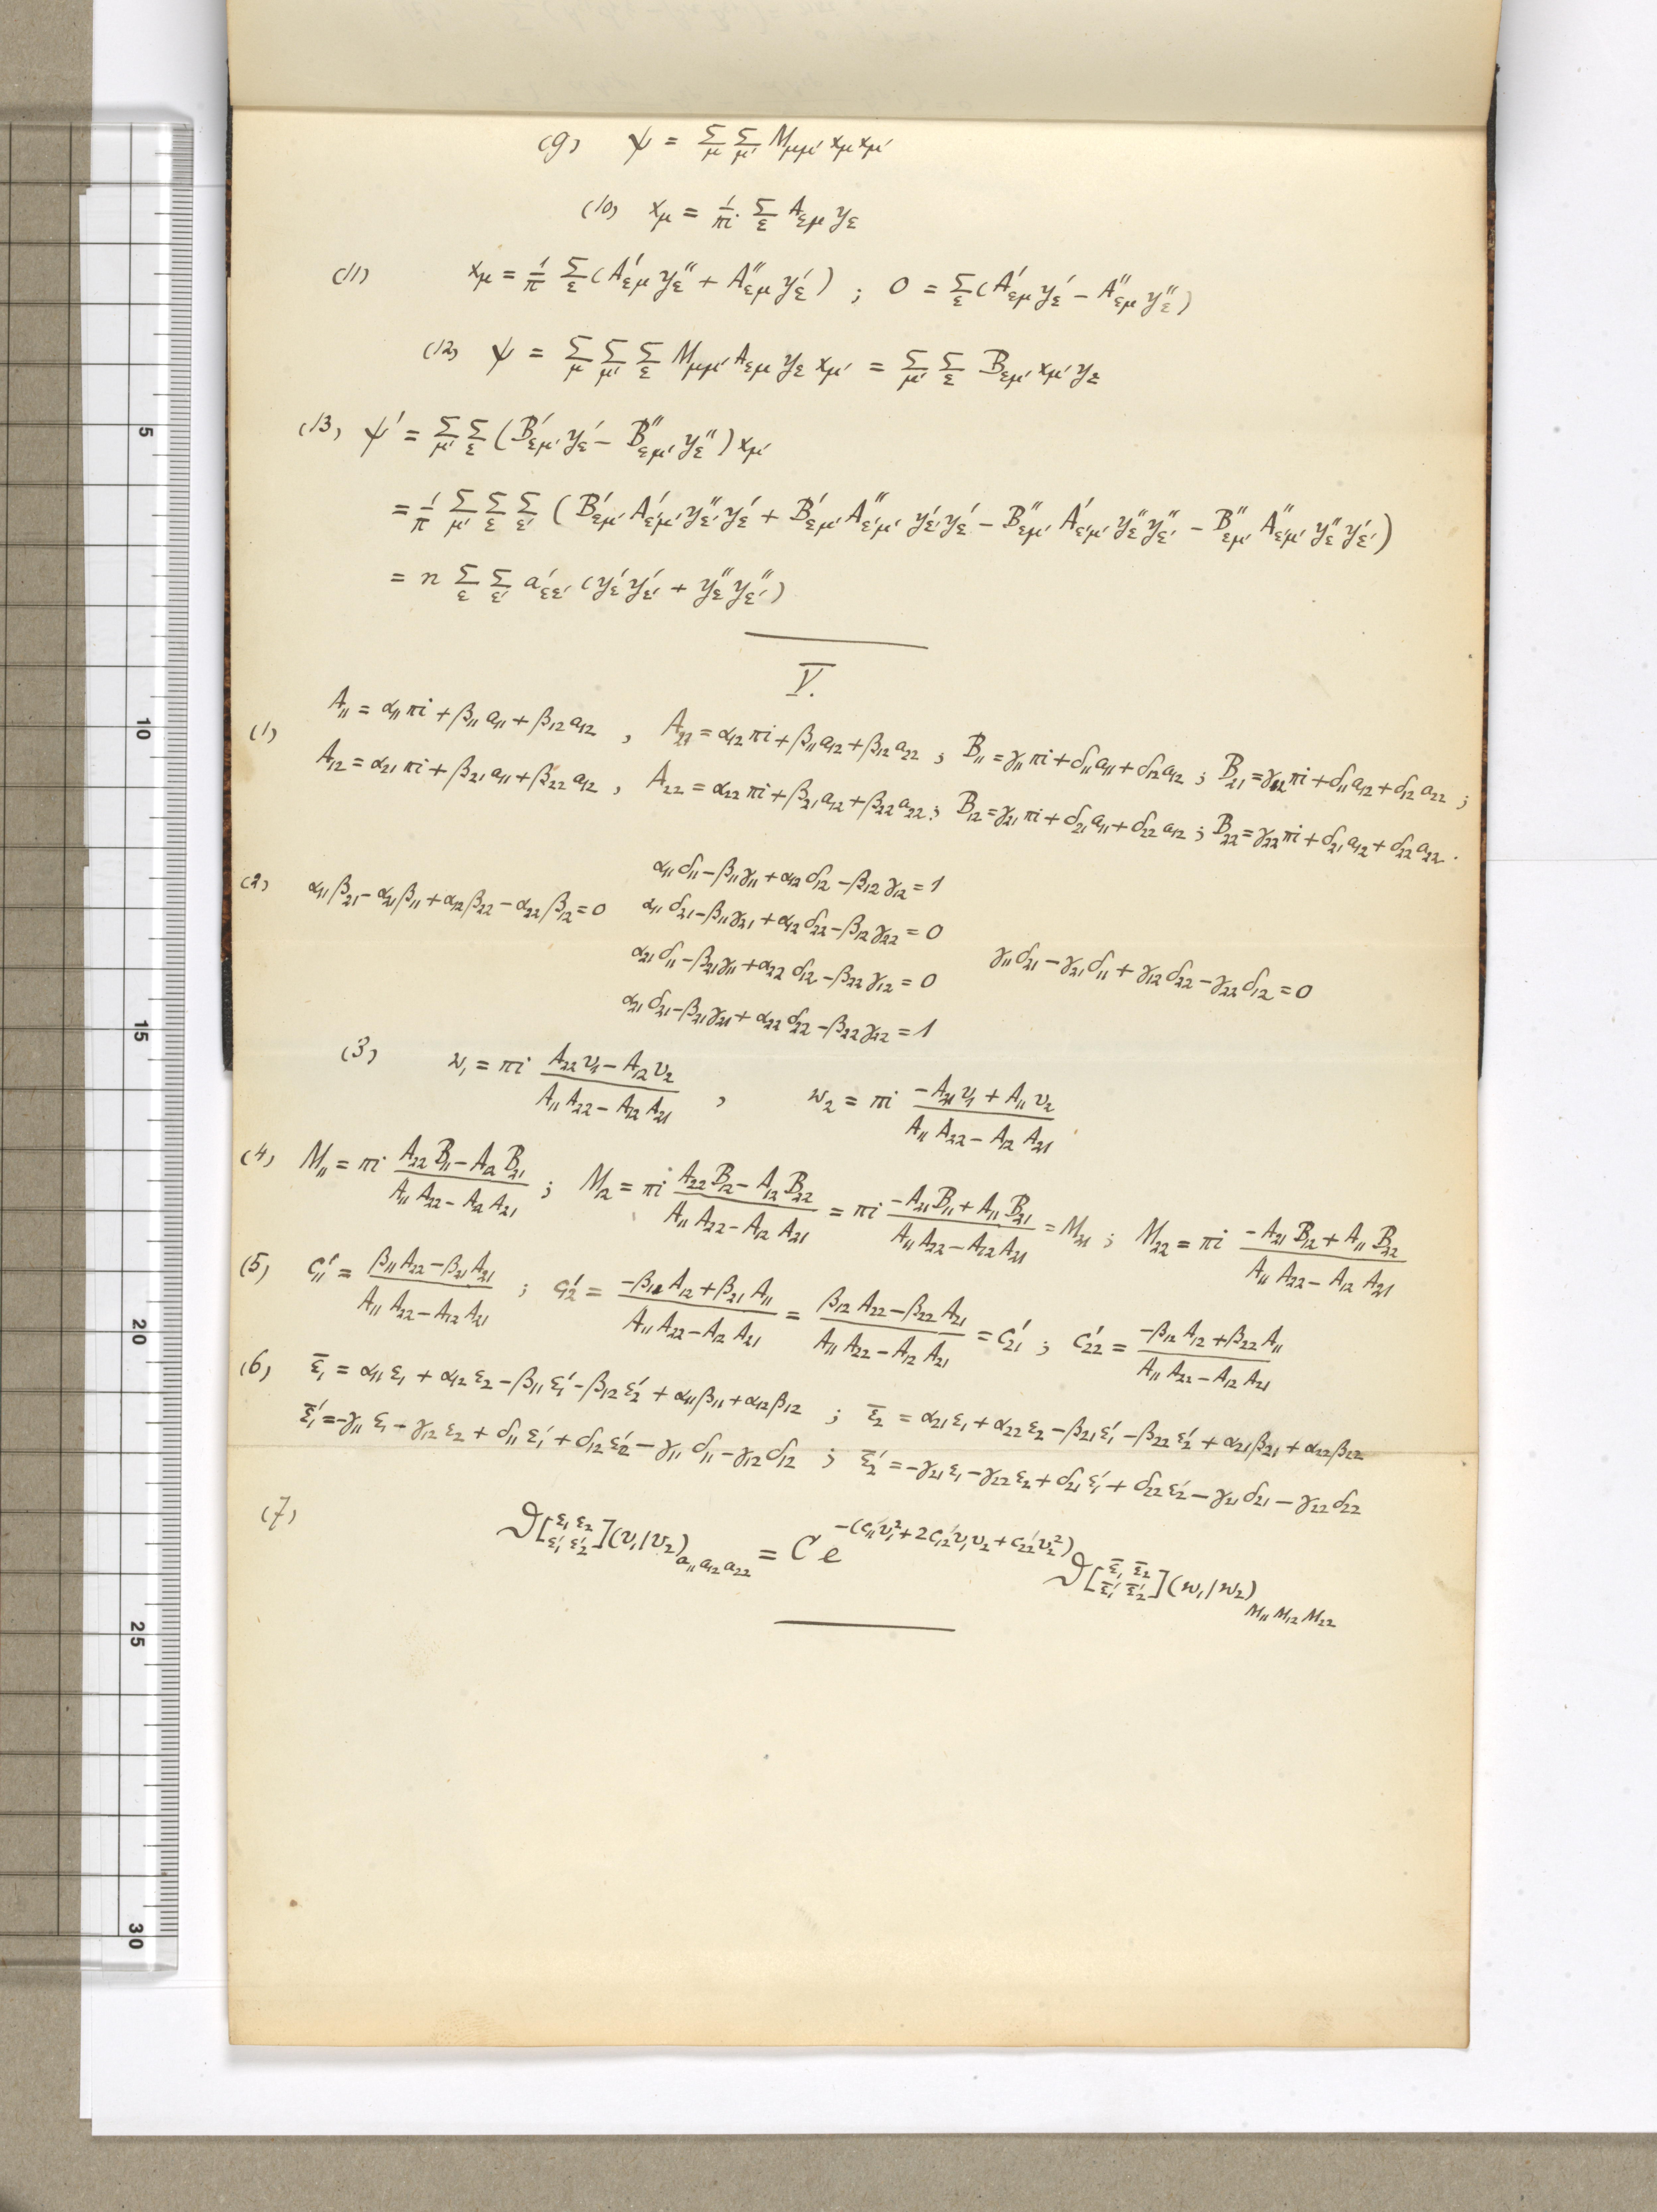 (9) ψ = Σ_μ Σ_μ' M_μμ' x_μ x_μ'
(10) x_μ = 1/πi Σ_ε A_εμ y_ε
(11) x_μ = 1/π Σ_ε (A'_εμ y''_ε + A''_εμ y'_ε) ; 0 = Σ_ε (A'_εμ y'_ε − A''_εμ y''_ε)
(12) ψ = Σ_μ Σ_μ' Σ_ε M_μμ' A_εμ y_ε x_μ' = Σ_μ' Σ_ε B_εμ' x_μ' y_ε
(13) ψ' = Σ_μ' Σ_ε (B'_εμ' y'_ε − B''_εμ' y''_ε) x_μ'
= 1/π Σ_μ' Σ_ε Σ_ε' (B'_εμ' A'_ε'μ' y''_ε' y'_ε + B'_εμ' A''_ε'μ' y'_ε' y'_ε − B''_εμ' A'_ε'μ' y''_ε y''_ε' − B''_εμ' A''_ε'μ' y''_ε y'_ε')
= n Σ_ε Σ_ε' a'_εε' (y'_ε y'_ε' + y''_ε y''_ε')
V.
(1) A₁₁ = α₁₁πi + β₁₁a₁₁ + β₁₂a₁₂ , A₂₁ = α₁₂πi + β₁₁a₁₂ + β₁₂a₂₂ ; B₁₁ = γ₁₁πi + δ₁₁a₁₁ + δ₁₂a₁₂ ; B₂₁ = γ₁₂πi + δ₁₁a₁₂ + δ₁₂a₂₂ ;
A₁₂ = α₂₁πi + β₂₁a₁₁ + β₂₂a₁₂ , A₂₂ = α₂₂πi + β₂₁a₁₂ + β₂₂a₂₂ ; B₁₂ = γ₂₁πi + δ₂₁a₁₁ + δ₂₂a₁₂ ; B₂₂ = γ₂₂πi + δ₂₁a₁₂ + δ₂₂a₂₂ .
α₁₁δ₁₁ − β₁₁γ₁₁ + α₁₂δ₁₂ − β₁₂γ₁₂ = 1
(2) α₁₁β₂₁ − α₂₁β₁₁ + α₁₂β₂₂ − α₂₂β₁₂ = 0 α₁₁δ₂₁ − β₁₁γ₂₁ + α₁₂δ₂₂ − β₁₂γ₂₂ = 0
α₂₁δ₁₁ − β₂₁γ₁₁ + α₂₂δ₁₂ − β₂₂γ₁₂ = 0 γ₁₁δ₂₁ − γ₂₁δ₁₁ + γ₁₂δ₂₂ − γ₂₂δ₁₂ = 0
α₂₁δ₂₁ − β₂₁γ₂₁ + α₂₂δ₂₂ − β₂₂γ₂₂ = 1
(3) w₁ = πi (A₂₂v₁ − A₁₂v₂)/(A₁₁A₂₂ − A₁₂A₂₁) , w₂ = πi (−A₂₁v₁ + A₁₁v₂)/(A₁₁A₂₂ − A₁₂A₂₁)
(4) M₁₁ = πi (A₂₂B₁₁ − A₁₂B₂₁)/(A₁₁A₂₂ − A₁₂A₂₁) ; M₁₂ = πi (A₂₂B₁₂ − A₁₂B₂₂)/(A₁₁A₂₂ − A₁₂A₂₁) = πi (−A₂₁B₁₁ + A₁₁B₂₁)/(A₁₁A₂₂ − A₁₂A₂₁) = M₂₁ ; M₂₂ = πi (−A₂₁B₁₂ + A₁₁B₂₂)/(A₁₁A₂₂ − A₁₂A₂₁)
(5) c'₁₁ = (β₁₁A₂₂ − β₂₁A₂₁)/(A₁₁A₂₂ − A₁₂A₂₁) ; c'₁₂ = (−β₁₁A₁₂ + β₂₁A₁₁)/(A₁₁A₂₂ − A₁₂A₂₁) = (β₁₂A₂₂ − β₂₂A₂₁)/(A₁₁A₂₂ − A₁₂A₂₁) = c'₂₁ ; c'₂₂ = (−β₁₂A₁₂ + β₂₂A₁₁)/(A₁₁A₂₂ − A₁₂A₂₁)
(6) ε̄₁ = α₁₁ε₁ + α₁₂ε₂ − β₁₁ε'₁ − β₁₂ε'₂ + α₁₁β₁₁ + α₁₂β₁₂ ; ε̄₂ = α₂₁ε₁ + α₂₂ε₂ − β₂₁ε'₁ − β₂₂ε'₂ + α₂₁β₂₁ + α₂₂β₂₂
ε̄'₁ = −γ₁₁ε₁ − γ₁₂ε₂ + δ₁₁ε'₁ + δ₁₂ε'₂ − γ₁₁δ₁₁ − γ₁₂δ₁₂ ; ε̄'₂ = −γ₂₁ε₁ − γ₂₂ε₂ + δ₂₁ε'₁ + δ₂₂ε'₂ − γ₂₁δ₂₁ − γ₂₂δ₂₂
(7) ϑ[ε₁ ε₂ / ε'₁ ε'₂](v₁|v₂)_{a₁₁ a₁₂ a₂₂} = C e^{−(c'₁₁v₁² + 2c'₁₂v₁v₂ + c'₂₂v₂²)} ϑ[ε̄₁ ε̄₂ / ε̄'₁ ε̄'₂](w₁|w₂)_{M₁₁ M₁₂ M₂₂}
5
10
15
20
25
30